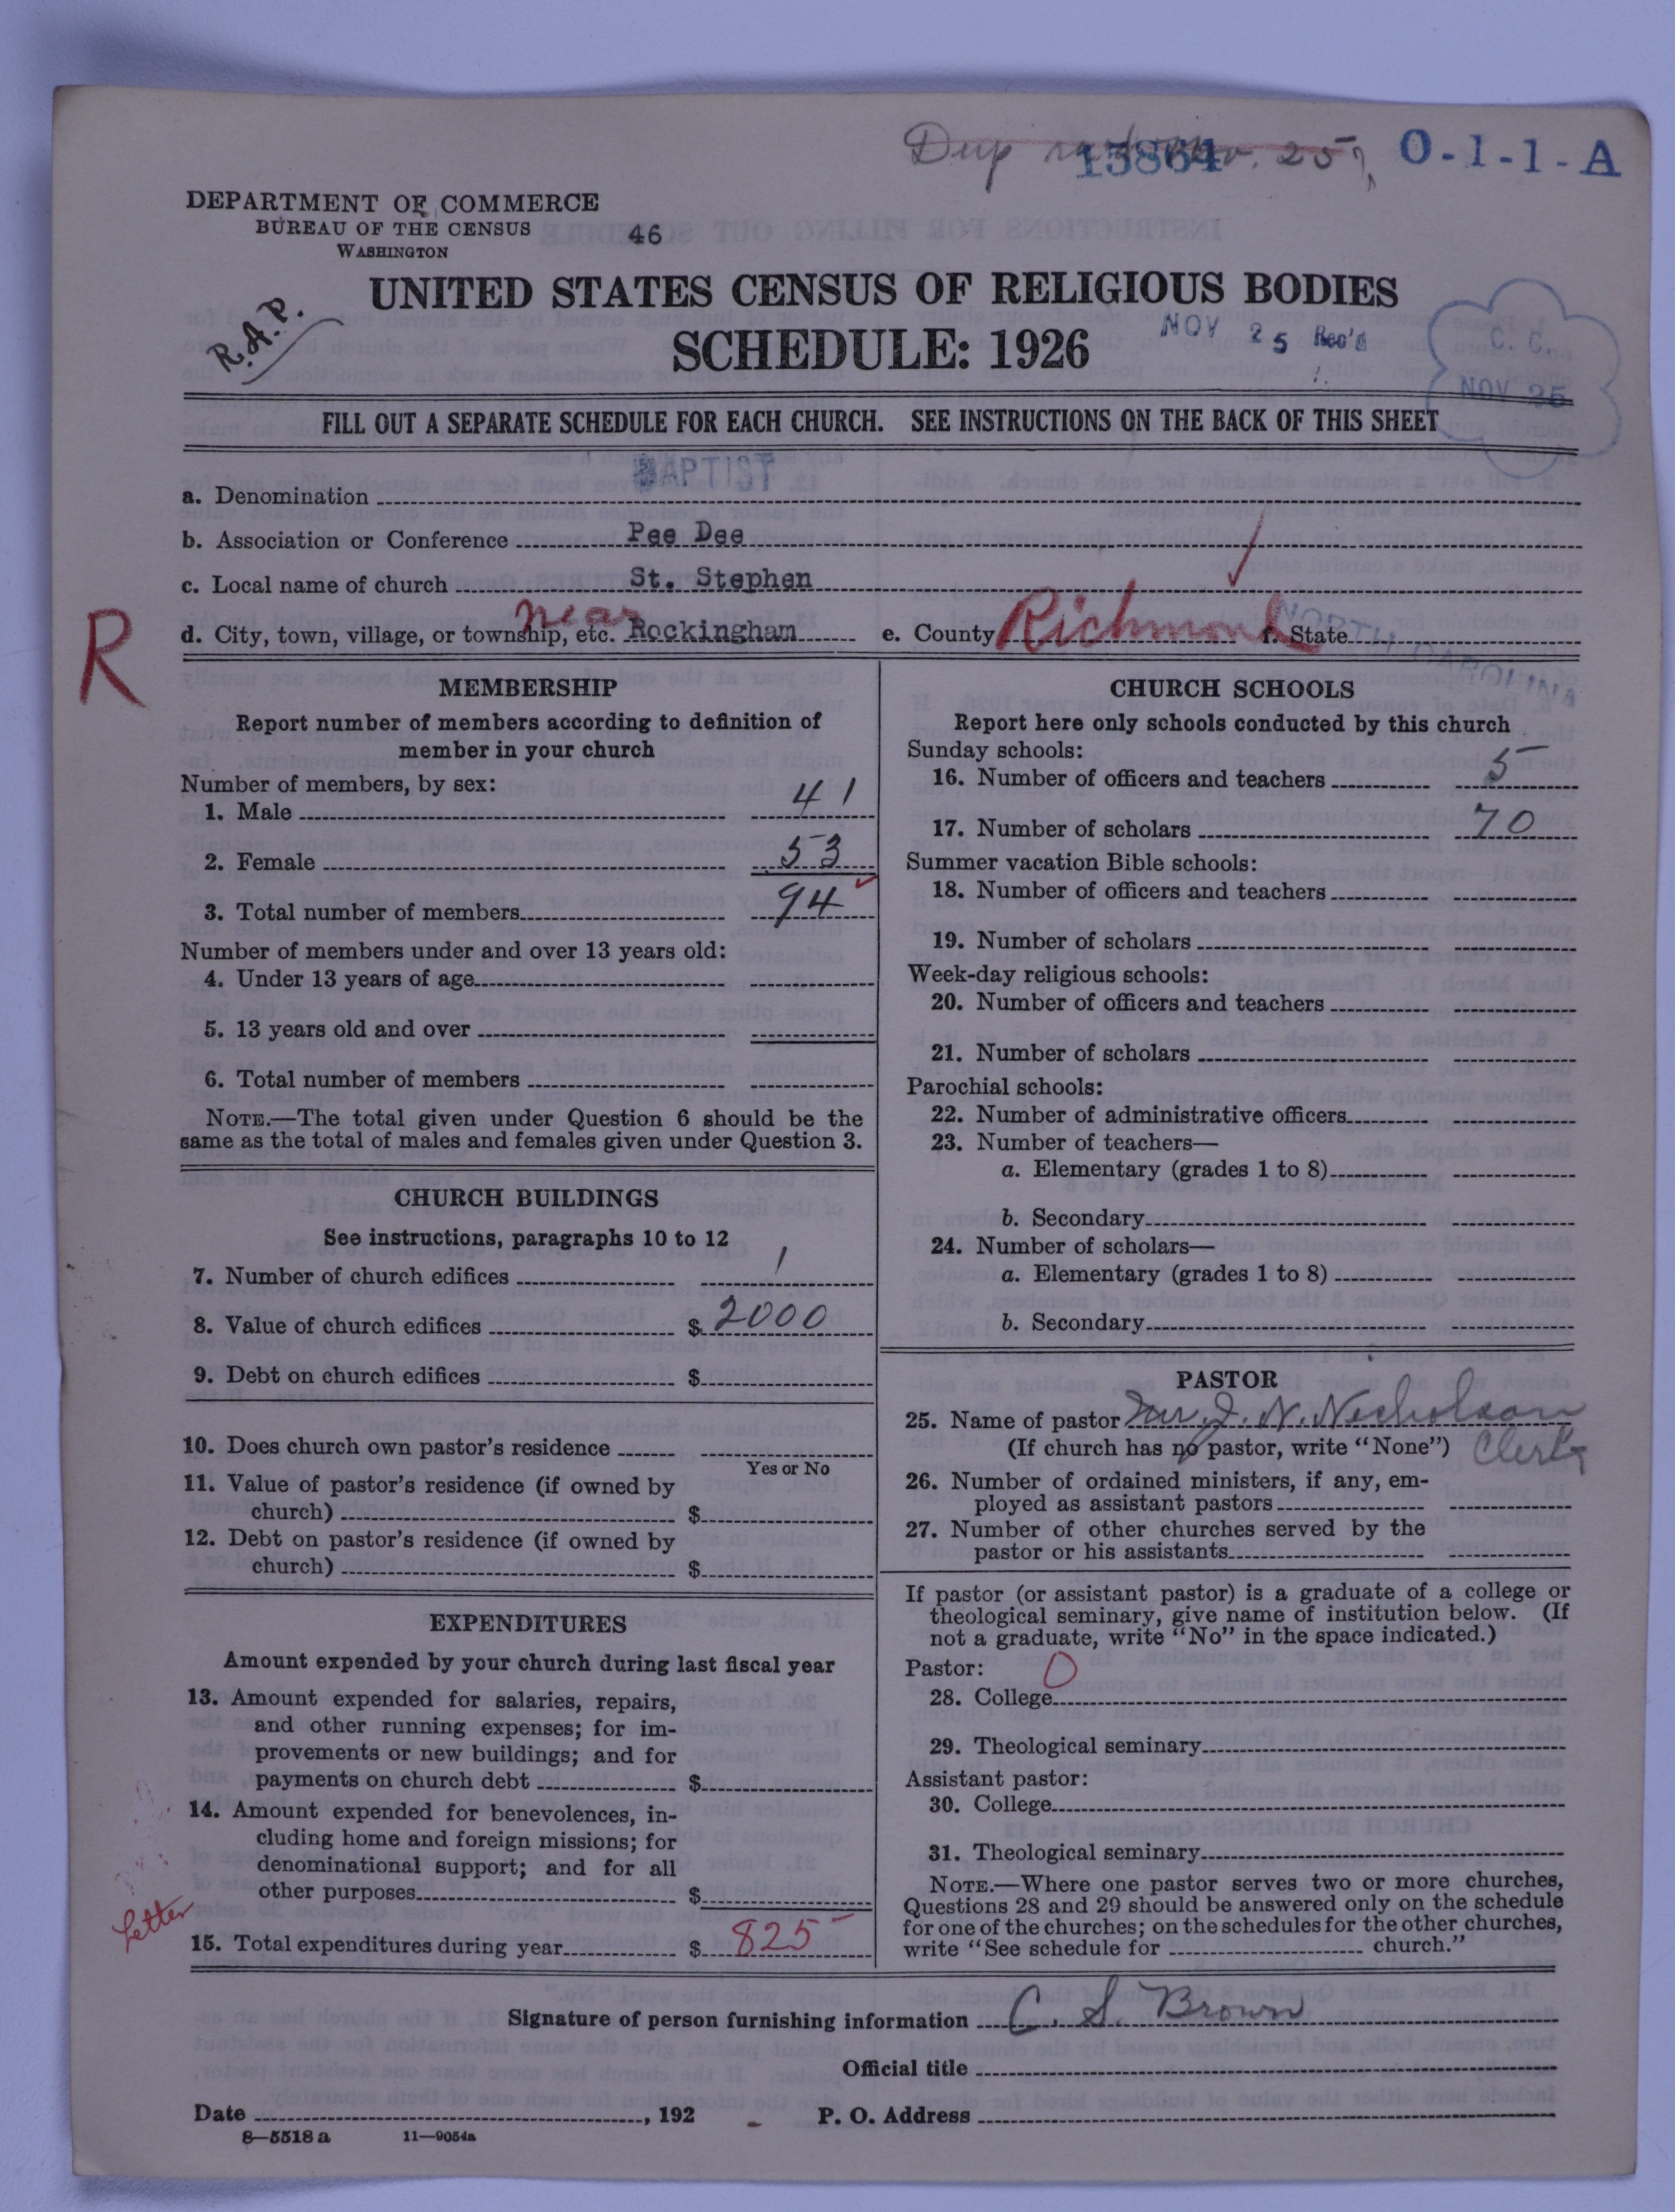 Dup 13864 Nov. 25, O-1-1-A
DEPARTMENT OF COMMERCE
BUREAU OF THE CENSUS
WASHINGTON
46
R.A.P.
UNITED STATES CENSUS OF RELIGIOUS BODIES
SCHEDULE: 1926
NOV 25 Rec'd
C. C.
NOV 26
FILL OUT A SEPARATE SCHEDULE FOR EACH CHURCH. SEE INSTRUCTIONS ON THE BACK OF THIS SHEET
a. Denomination BAPTIST
b. Association or Conference Pee Dee
c. Local name of church St. Stephen
d. City, town, village, or township, etc. near Rockingham e. County Richmond f. State NORTH CAROLINA
R
MEMBERSHIP
Report number of members according to definition of
member in your church
Number of members, by sex:
1. Male 41
2. Female 53
3. Total number of members 94
Number of members under and over 13 years old:
4. Under 13 years of age
5. 13 years old and over
6. Total number of members
NOTE.—The total given under Question 6 should be the
same as the total of males and females given under Question 3.
CHURCH BUILDINGS
See instructions, paragraphs 10 to 12
7. Number of church edifices 1
8. Value of church edifices $ 2000
9. Debt on church edifices $
10. Does church own pastor's residence
Yes or No
11. Value of pastor's residence (if owned by
church) $
12. Debt on pastor's residence (if owned by
church) $
EXPENDITURES
Amount expended by your church during last fiscal year
13. Amount expended for salaries, repairs,
and other running expenses; for im-
provements or new buildings; and for
payments on church debt $
14. Amount expended for benevolences, in-
cluding home and foreign missions; for
denominational support; and for all
other purposes $
Letter
15. Total expenditures during year $ 825
CHURCH SCHOOLS
Report here only schools conducted by this church
Sunday schools:
16. Number of officers and teachers 5
17. Number of scholars 70
Summer vacation Bible schools:
18. Number of officers and teachers
19. Number of scholars
Week-day religious schools:
20. Number of officers and teachers
21. Number of scholars
Parochial schools:
22. Number of administrative officers
23. Number of teachers—
a. Elementary (grades 1 to 8)
b. Secondary
24. Number of scholars—
a. Elementary (grades 1 to 8)
b. Secondary
PASTOR
25. Name of pastor Mr J. N. Nicholson
(If church has no pastor, write "None") Clerk
26. Number of ordained ministers, if any, em-
ployed as assistant pastors
27. Number of other churches served by the
pastor or his assistants
If pastor (or assistant pastor) is a graduate of a college or
theological seminary, give name of institution below. (If
not a graduate, write "No" in the space indicated.)
Pastor: O
28. College
29. Theological seminary
Assistant pastor:
30. College
31. Theological seminary
NOTE.—Where one pastor serves two or more churches,
Questions 28 and 29 should be answered only on the schedule
for one of the churches; on the schedules for the other churches,
write "See schedule for church."
Signature of person furnishing information C. S. Brown
Official title
Date , 192 P. O. Address
8—5518 a 11—9054a